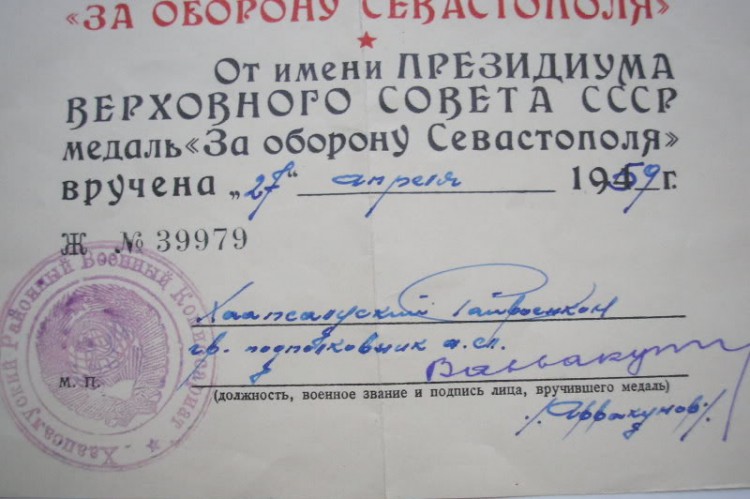 «ЗА ОБОРОНУ СЕВАСТОПОЛЯ»
От имени ПРЕЗИДИУМА
ВЕРХОВНОГО СОВЕТА СССР
медаль «За оборону Севастополя»
вручена „27“ апреля 1959 г.
Ж № 39979
Хаапсалуский Райвоенком
гв. подполковник а.сл.
М. П.
(должность, военное звание и подпись лица, вручившего медаль)
Хаапсалуский Районный Военный Комиссариат